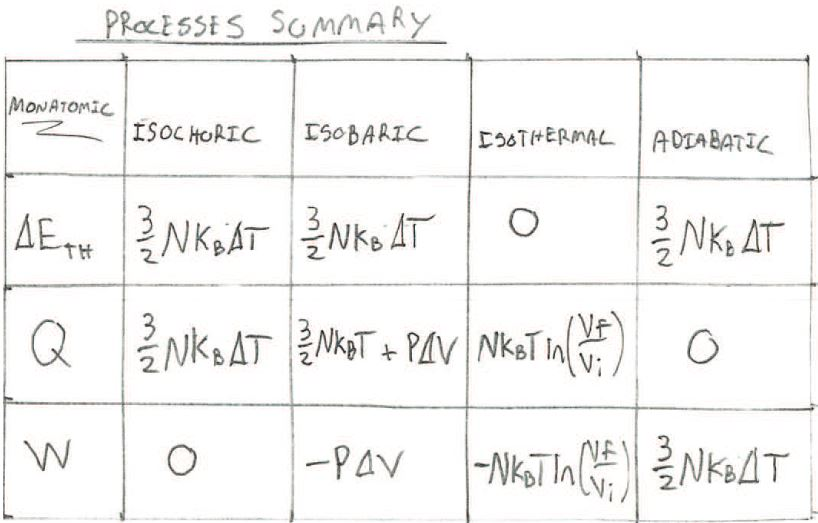 PROCESSES SUMMARY
MONATOMIC ISOCHORIC ISOBARIC ISOTHERMAL ADIABATIC
ΔE_TH 3/2 NK_BΔT 3/2 NK_BΔT 0 3/2 NK_BΔT
Q 3/2 NK_BΔT 3/2 NK_BT + PΔV NK_BT ln(Vf/Vi) 0
W 0 -PΔV -NK_BT ln(Vf/Vi) 3/2 NK_BΔT